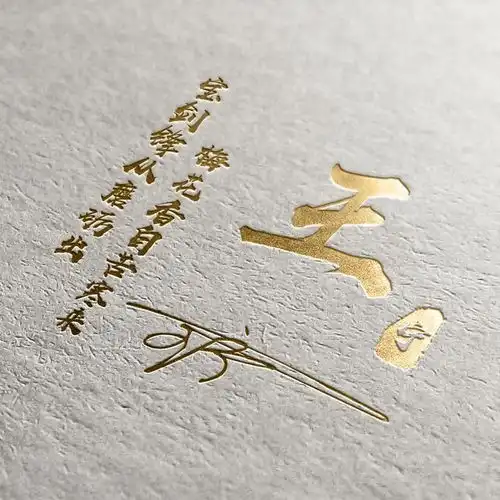 宝剑锋从磨砺出
梅花香自苦寒来
王